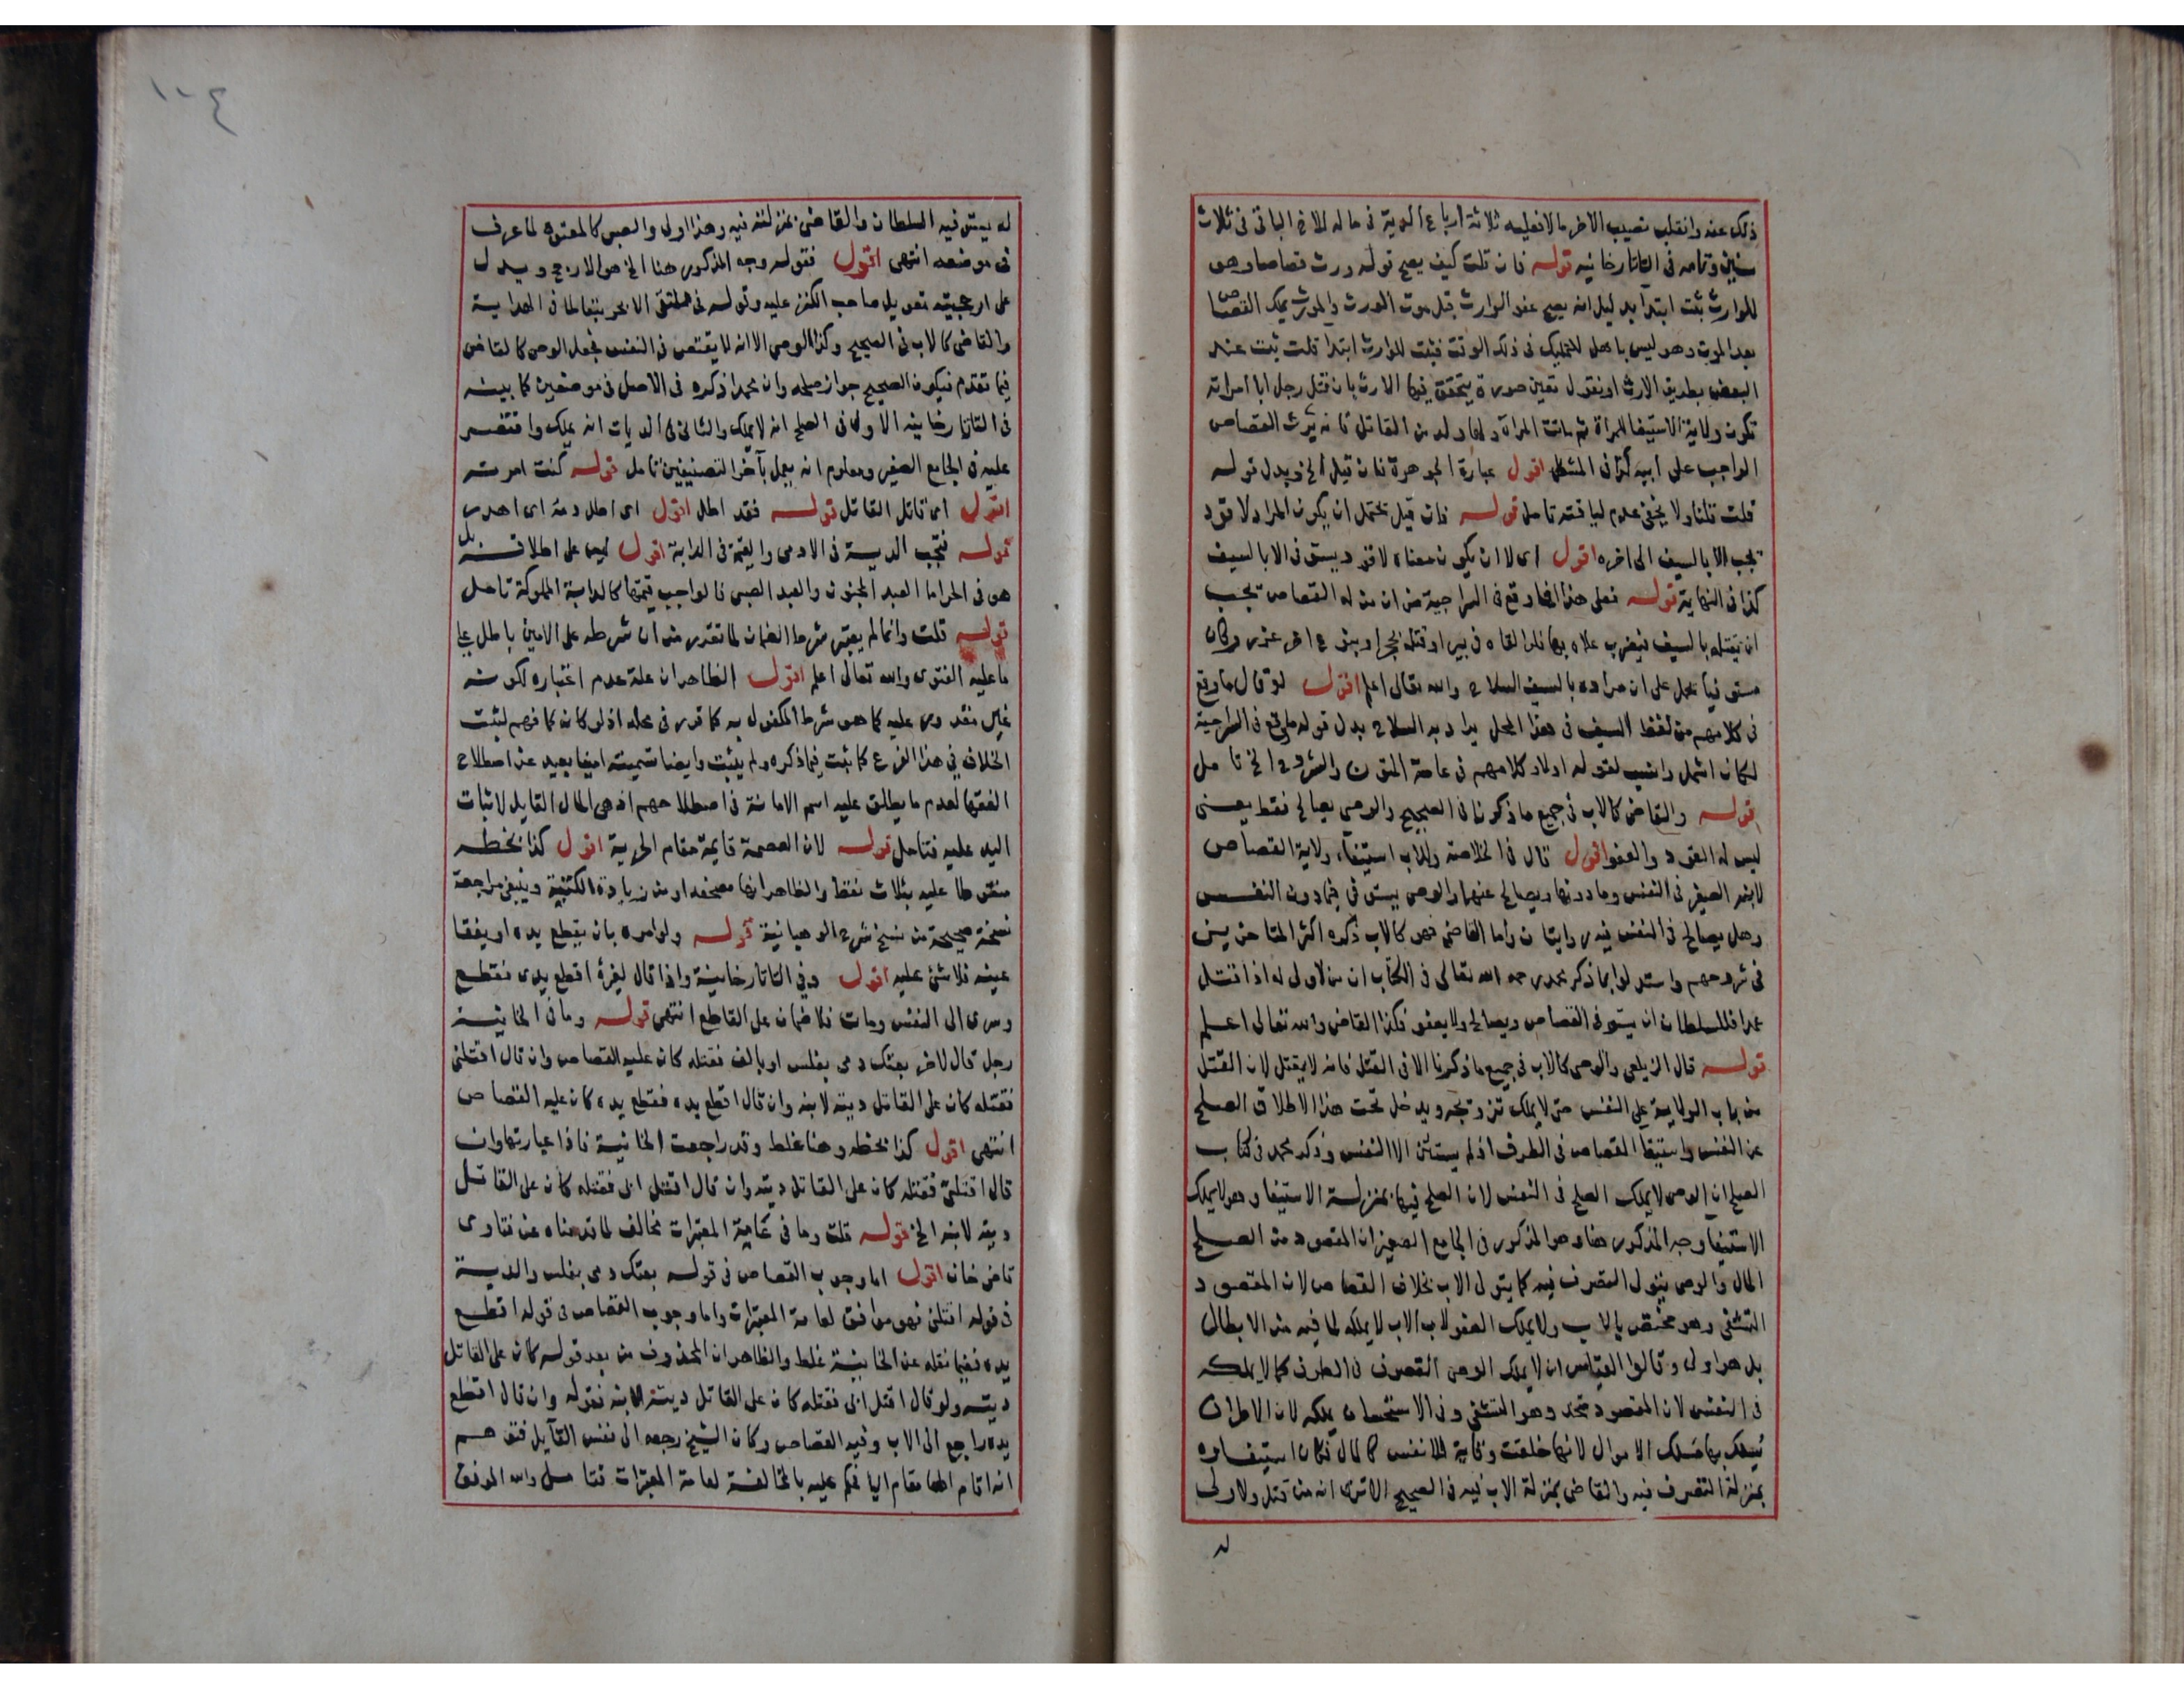 ذلك عنه وانقلب نصيب الاخر مالا فعليه ثلاثة ارباع الدية في ماله للاخ الباقي في ثلاث
سنين وتمامه في التاتارخانيه قوله فان قلت كيف يصح قوله ورث قصاصا وهو
للوارث ثبت ابتدا بدليل انه يصح عفو الوارث قبل موت المورث والمورث يملك القصاص
بعد الموت وهو ليس باهل للتمليك في ذلك الوقت فيثبت للوارث ابتدا قلت ثبت عند
البعض بطريق الارث او نقول تعين صورة يتحقق فيها الارث بان قتل رجل ابا امراته
تكون ولاية الاستيفا للمراة ثم ماتت المراة ولها ولد من القاتل فانه يرث القصاص
الواجب على ابيه كذا في المشكل اقول عبارة الجوهرة فان قيل الخ وبدل قوله
قلت قلنا ولا يخفى عدم لياقته تامل قوله فان قيل يحتمل ان يكون المراد لا قود
يجب الا بالسيف الى اخره اقول اى لا ان يكون معناه لا قود يستوفى الا بالسيف
كذا في النهاية قوله فعلى هذا فما وقع في السراجية من ان من له القصاص يجب
ان يقتله بالسيف فيضرب علاوه بها فلو القاه في بير او قتله بحجر او بنوع اخر عزر وكان
مستوفيا يحمل على ان مراده بالسيف السلاح والله تعالى اعلم اقول لو قال ما وقع
في كلامهم من لفظ السيف في هذا المحل يراد به السلاح بدل قوله ما وقع في السراجية
لكان اشمل وانسب لقوله اولا وكلامهم في عامة المتون والشروح الخ تامل
قوله والقاضي كالاب في جميع ما ذكرنا في الصحيح والوصي يصالح فقط يعنى
ليس له القود والعفو اقول قال في الخلاصة وللاب استيفاء ولاية القصاص
لابنه الصغير في النفس وما دونها ويصالح عنهما والوصي يستوفي فيما دون النفس
وهل يصالح في النفس فيه روايتان واما القاضي فهو كالاب ذكره اكثر المتاخرين
في شروحهم واستدلوا بما ذكر محمد رحمه الله تعالى في الكتاب ان من لا ولى له اذا قتل
عمدا فللسلطان ان يستوفي القصاص ويصالح ولا يعفو فكذا القاضي والله تعالى اعلم
قوله قال الزيلعي والوصي كالاب في جميع ما ذكرنا الا في القتل فانه لا يقتل لان القتل
من باب الولاية على النفس حتى لا يملك تزويجه ويدخل تحت هذا الاطلاق الصلح
عن النفس واستيفا القصاص في الطرف اذ لم يستثن الا النفس وذكر محمد في كتاب
الصلح ان الوصي لا يملك الصلح في النفس لان الصلح فيها بمنزلة الاستيفا وهو لا يملك
الاستيفا وجه المذكور هنا وهو المذكور في الجامع الصغير ان المقصود من الصلح
المال والوصي يتولى التصرف فيه كما يتولى الاب بخلاف القصاص لان المقصود
التشفي وهو مختص بالاب ولا يملك العفو لان الاب لا يملكه لما فيه من الابطال
بل هو اولى وقالوا القياس ان لا يملك الوصي التصرف في الطرف كما لا يملكه
في النفس لان المقصود متحد وهو التشفي وفي الاستحسان يملكه لان الاطراف
يسلك بها مسلك الاموال لانها خلقت وقاية للانفس كالمال فكان استيفاوه
بمنزلة التصرف فيه والقاضي بمنزلة الاب فيه في الصحيح الا ترى انه من قتل ولا ولى
له
١٠٤
له يستوفيه السلطان والقاضي بمنزلته فيه وهذا اولى والصبي كالمعتوه لما عرف
في موضعه انتهى اقول فقوله وجه المذكور هنا الخ هو الارجح ويدل
على ارجحيته تعويل صاحب الكنز عليه وقوله في ملتقى الابحر تبعا لما في الهداية
والقاضي كالاب في الصحيح وكذا الوصي الا انه لا يقتص في النفس فجعل الوصي كالقاضي
فيما تقدم فيكون الصحيح جواز صلحه وان محمدا ذكره في الاصل في موضعين كما بينه
في التاتارخانيه الاول في الصلح انه لا يملك والثاني في الديات انه يملك واقتصر
عليه في الجامع الصغير ومعلوم انه يعمل بآخر التصنيفين تامل قوله كنت امرته
اقول اى قاتل القاتل قوله فقد اطل اقول اى اطل دمه اى اهدر
قوله فتجب الدية في الادمى والقيمة في الدابة اقول ليس على اطلاقه بل
هو في الحر اما العبد المجنون والعبد الصبي فالواجب قيمتها كالدابة المملوكة تامل
قوله قلت وانما لم يعتبر شرط الضمان لما تقرر من ان شرطه على الامين باطل على
ما عليه الفتوى والله تعالى اعلم اقول الظاهر ان علة عدم اعتباره كونه
غير مقدور عليه كما هو شرط المكفول به كما قدر في محله اذ لو كان كما فهم لثبت
الخلاف في هذا الفرع كما ثبت فيما ذكره ولم يثبت وايضا تسميته امينا بعيد عن اصطلاح
الفقها لعدم ما يطلق عليه اسم الامانة في اصطلاحهم اذ هي المال القابل لاثبات
اليد عليه فتامل قوله لان العصمة قايمة مقام الحرية اقول كذا بخطه
منقوطا عليه بثلاث نقط والظاهر انها مصحفه او من زيادة الكتبة وينبغي مراجعة
نسخة صحيحة من نسخ شرح الوهبانية قوله ولو امره بان يقطع يده او يفقا
عينه فلا شئ عليه اقول وفي التاتارخانية واذا قال لغيرة اقطع يدى فقطع
وسرى الى النفس ومات فلا ضمان على القاطع انتهى قوله وما في الخانية
رجل قال لاخر بعتك دمى بفلس او بالف فقتله كان عليه القصاص وان قال اقتلنى
فقتله كان على القاتل ديته لابنه وان قال اقطع يده فقطع يده كان عليه القصاص
انتهى اقول كذا بخطه وهنا غلط وقد راجعت الخانية فاذا عبارتها وان
قال اقتلنى فقتله كان على القاتل ديته وان قال اقتل ابى فقتله كان على القاتل
ديته لابنه الخ قوله قلت وما في عامة المعتبرات مخالف لما قدمناه عن فتاوى
قاضى خان اقول اما وجوب القصاص في قوله بعتك دمى بفلس والدية
في قوله اقتلنى فهو موافق لعامة المعتبرات واما وجوب القصاص في قوله اقطع
يده ففيما نقله عن الخانية غلط والظاهر ان المحذوف من بعد قوله كان على القاتل
ديته ولو قال اقتل ابى فقتله كان على القاتل ديته لابنه فقوله وان قال اقطع
يده راجع الى الاب وفيه القصاص وكان الشيخ رجعه الى نفس القآيل فتوهم
انه اقام الها مقام اليا فحكم عليه بالمخالفة لعامة المعتبرات فتامل والله الموفق